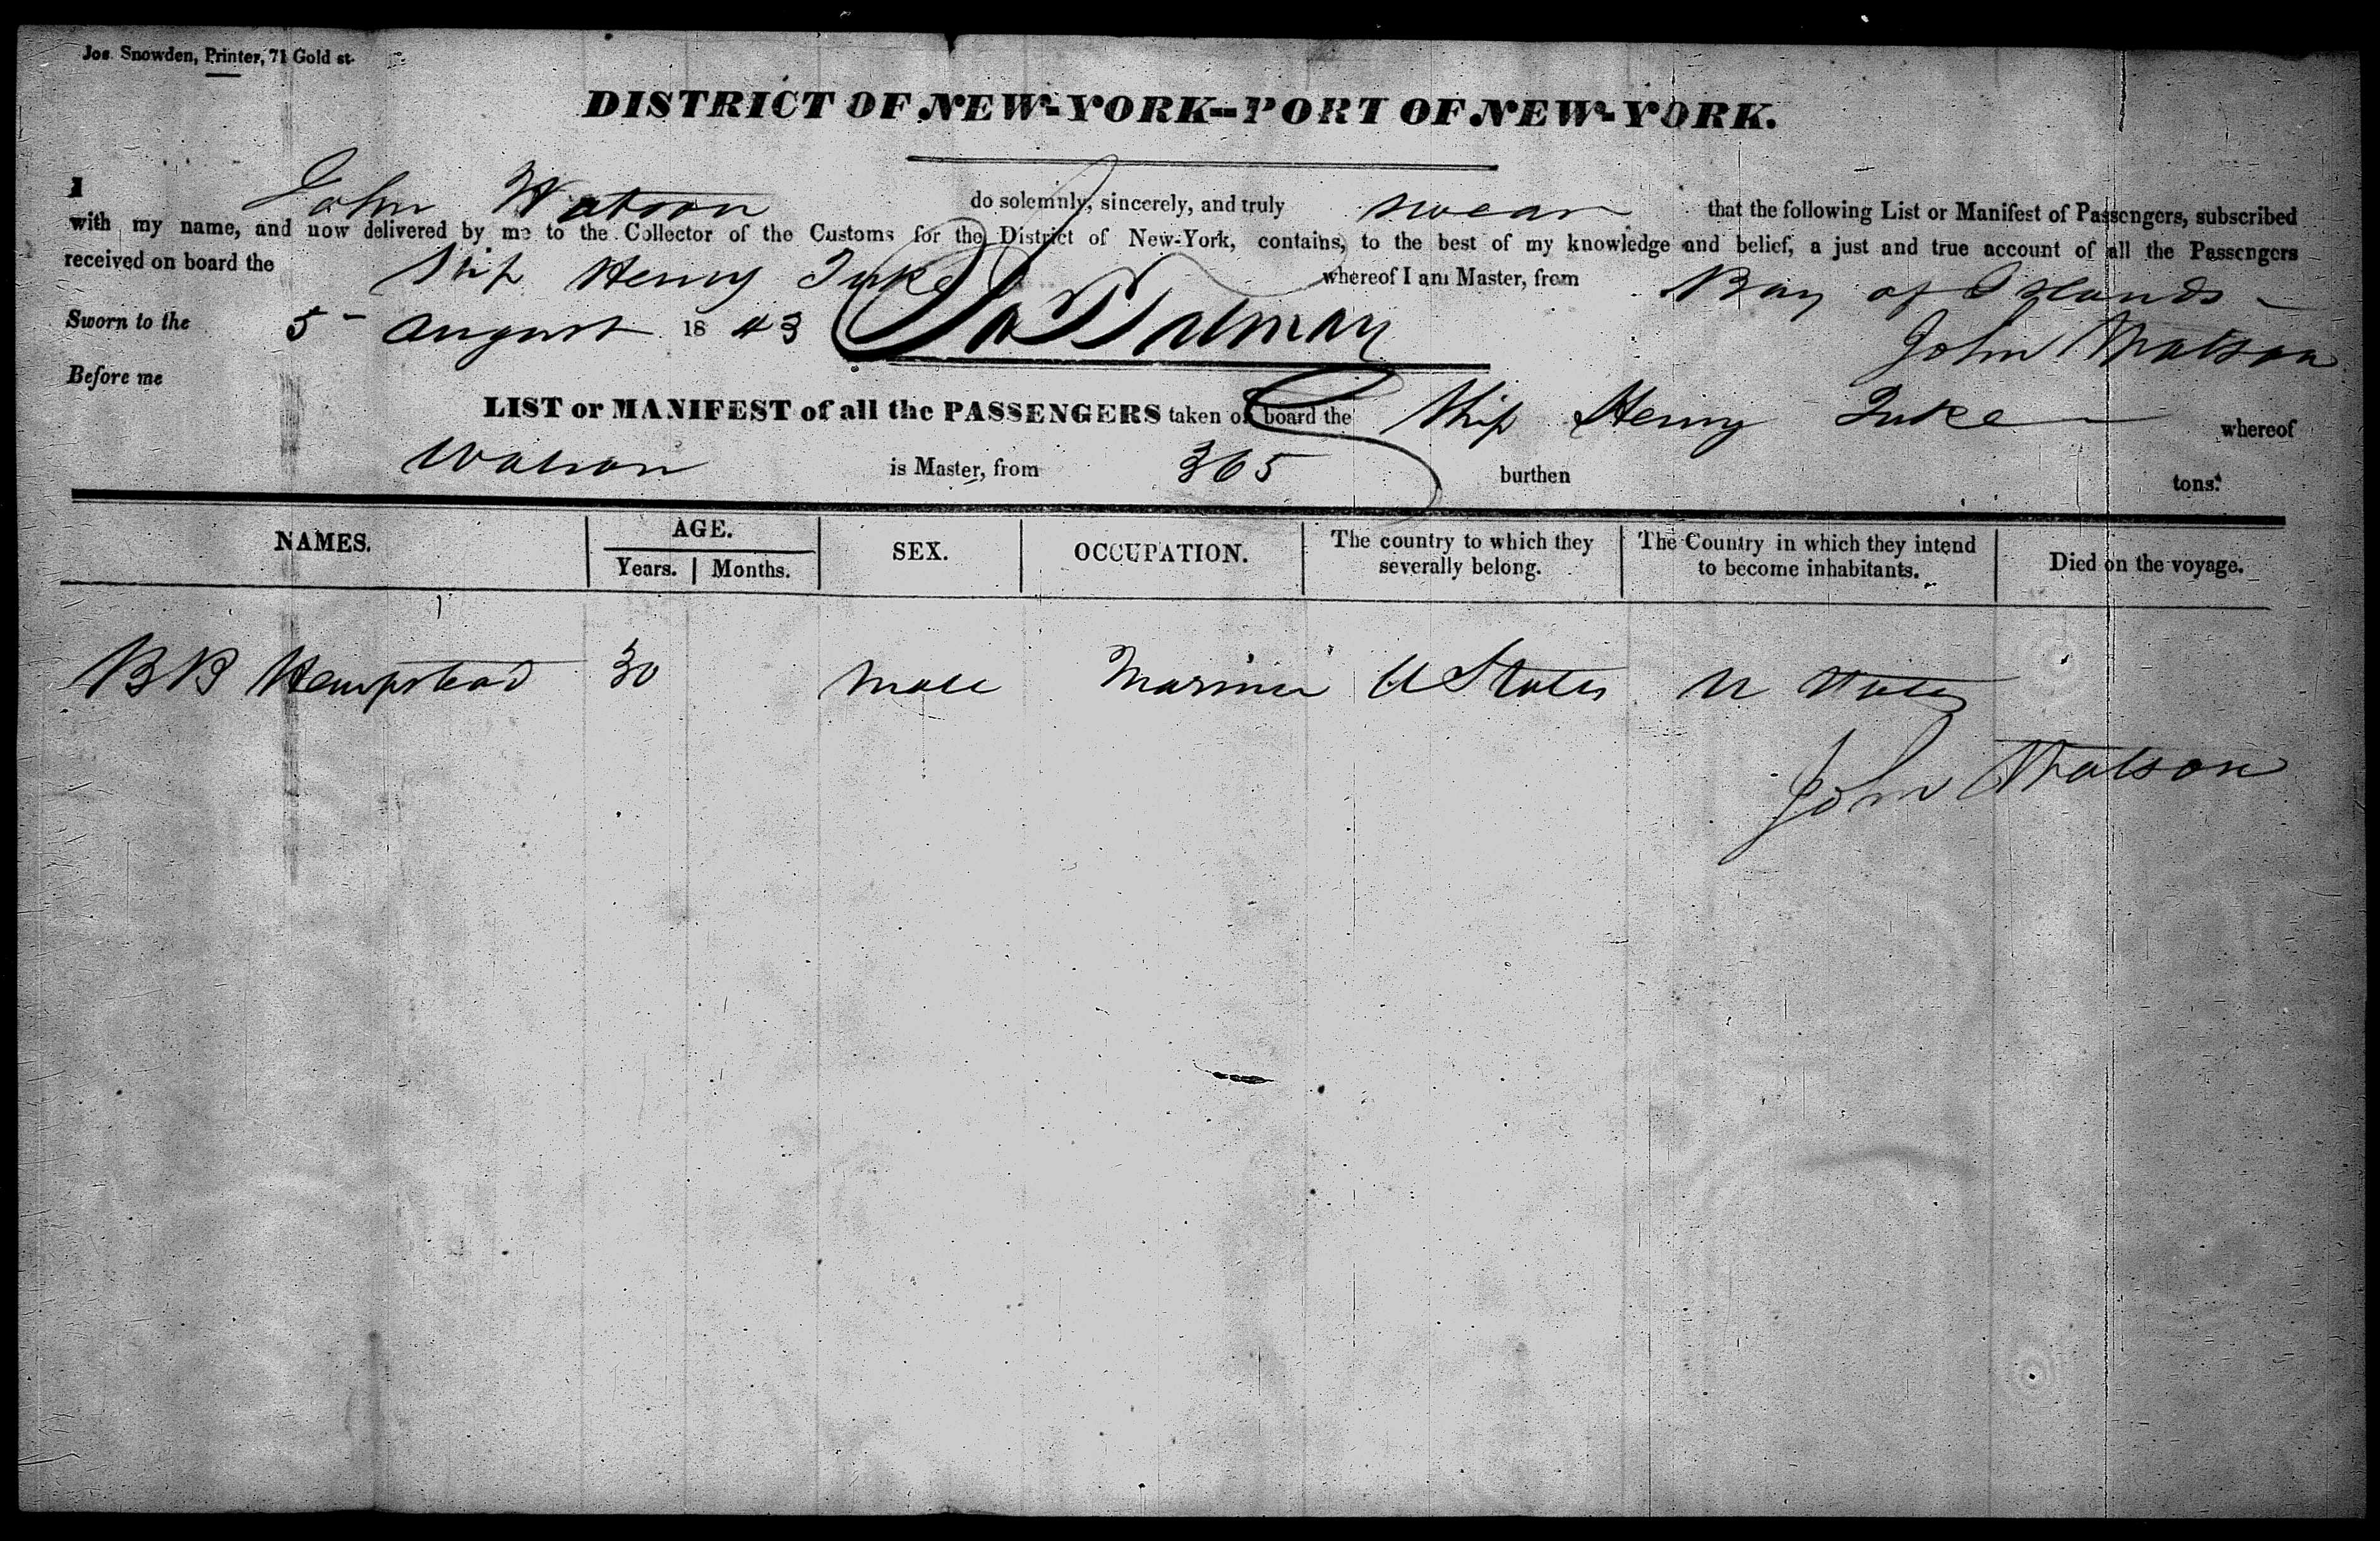 Jos. Snowden, Printer, 71 Gold st.
DISTRICT OF NEW-YORK--PORT OF NEW-YORK.
I John Watson do solemnly, sincerely, and truly swear that the following List or Manifest of Passengers, subscribed
with my name, and now delivered by me to the Collector of the Customs for the District of New-York, contains, to the best of my knowledge and belief, a just and true account of all the Passengers
received on board the Ship Henry Tuke whereof I am Master, from Bay of Islands
Sworn to the 5 August 1843
John Watson
Before me
LIST or MANIFEST of all the PASSENGERS taken on board the Ship Henry Tuke whereof
Watson is Master, from 365 burthen tons.
NAMES. AGE. SEX. OCCUPATION. The country to which they severally belong. The Country in which they intend to become inhabitants. Died on the voyage.
Years. Months.
B B Hempstead 30 Male Mariner U States U States
John Watson